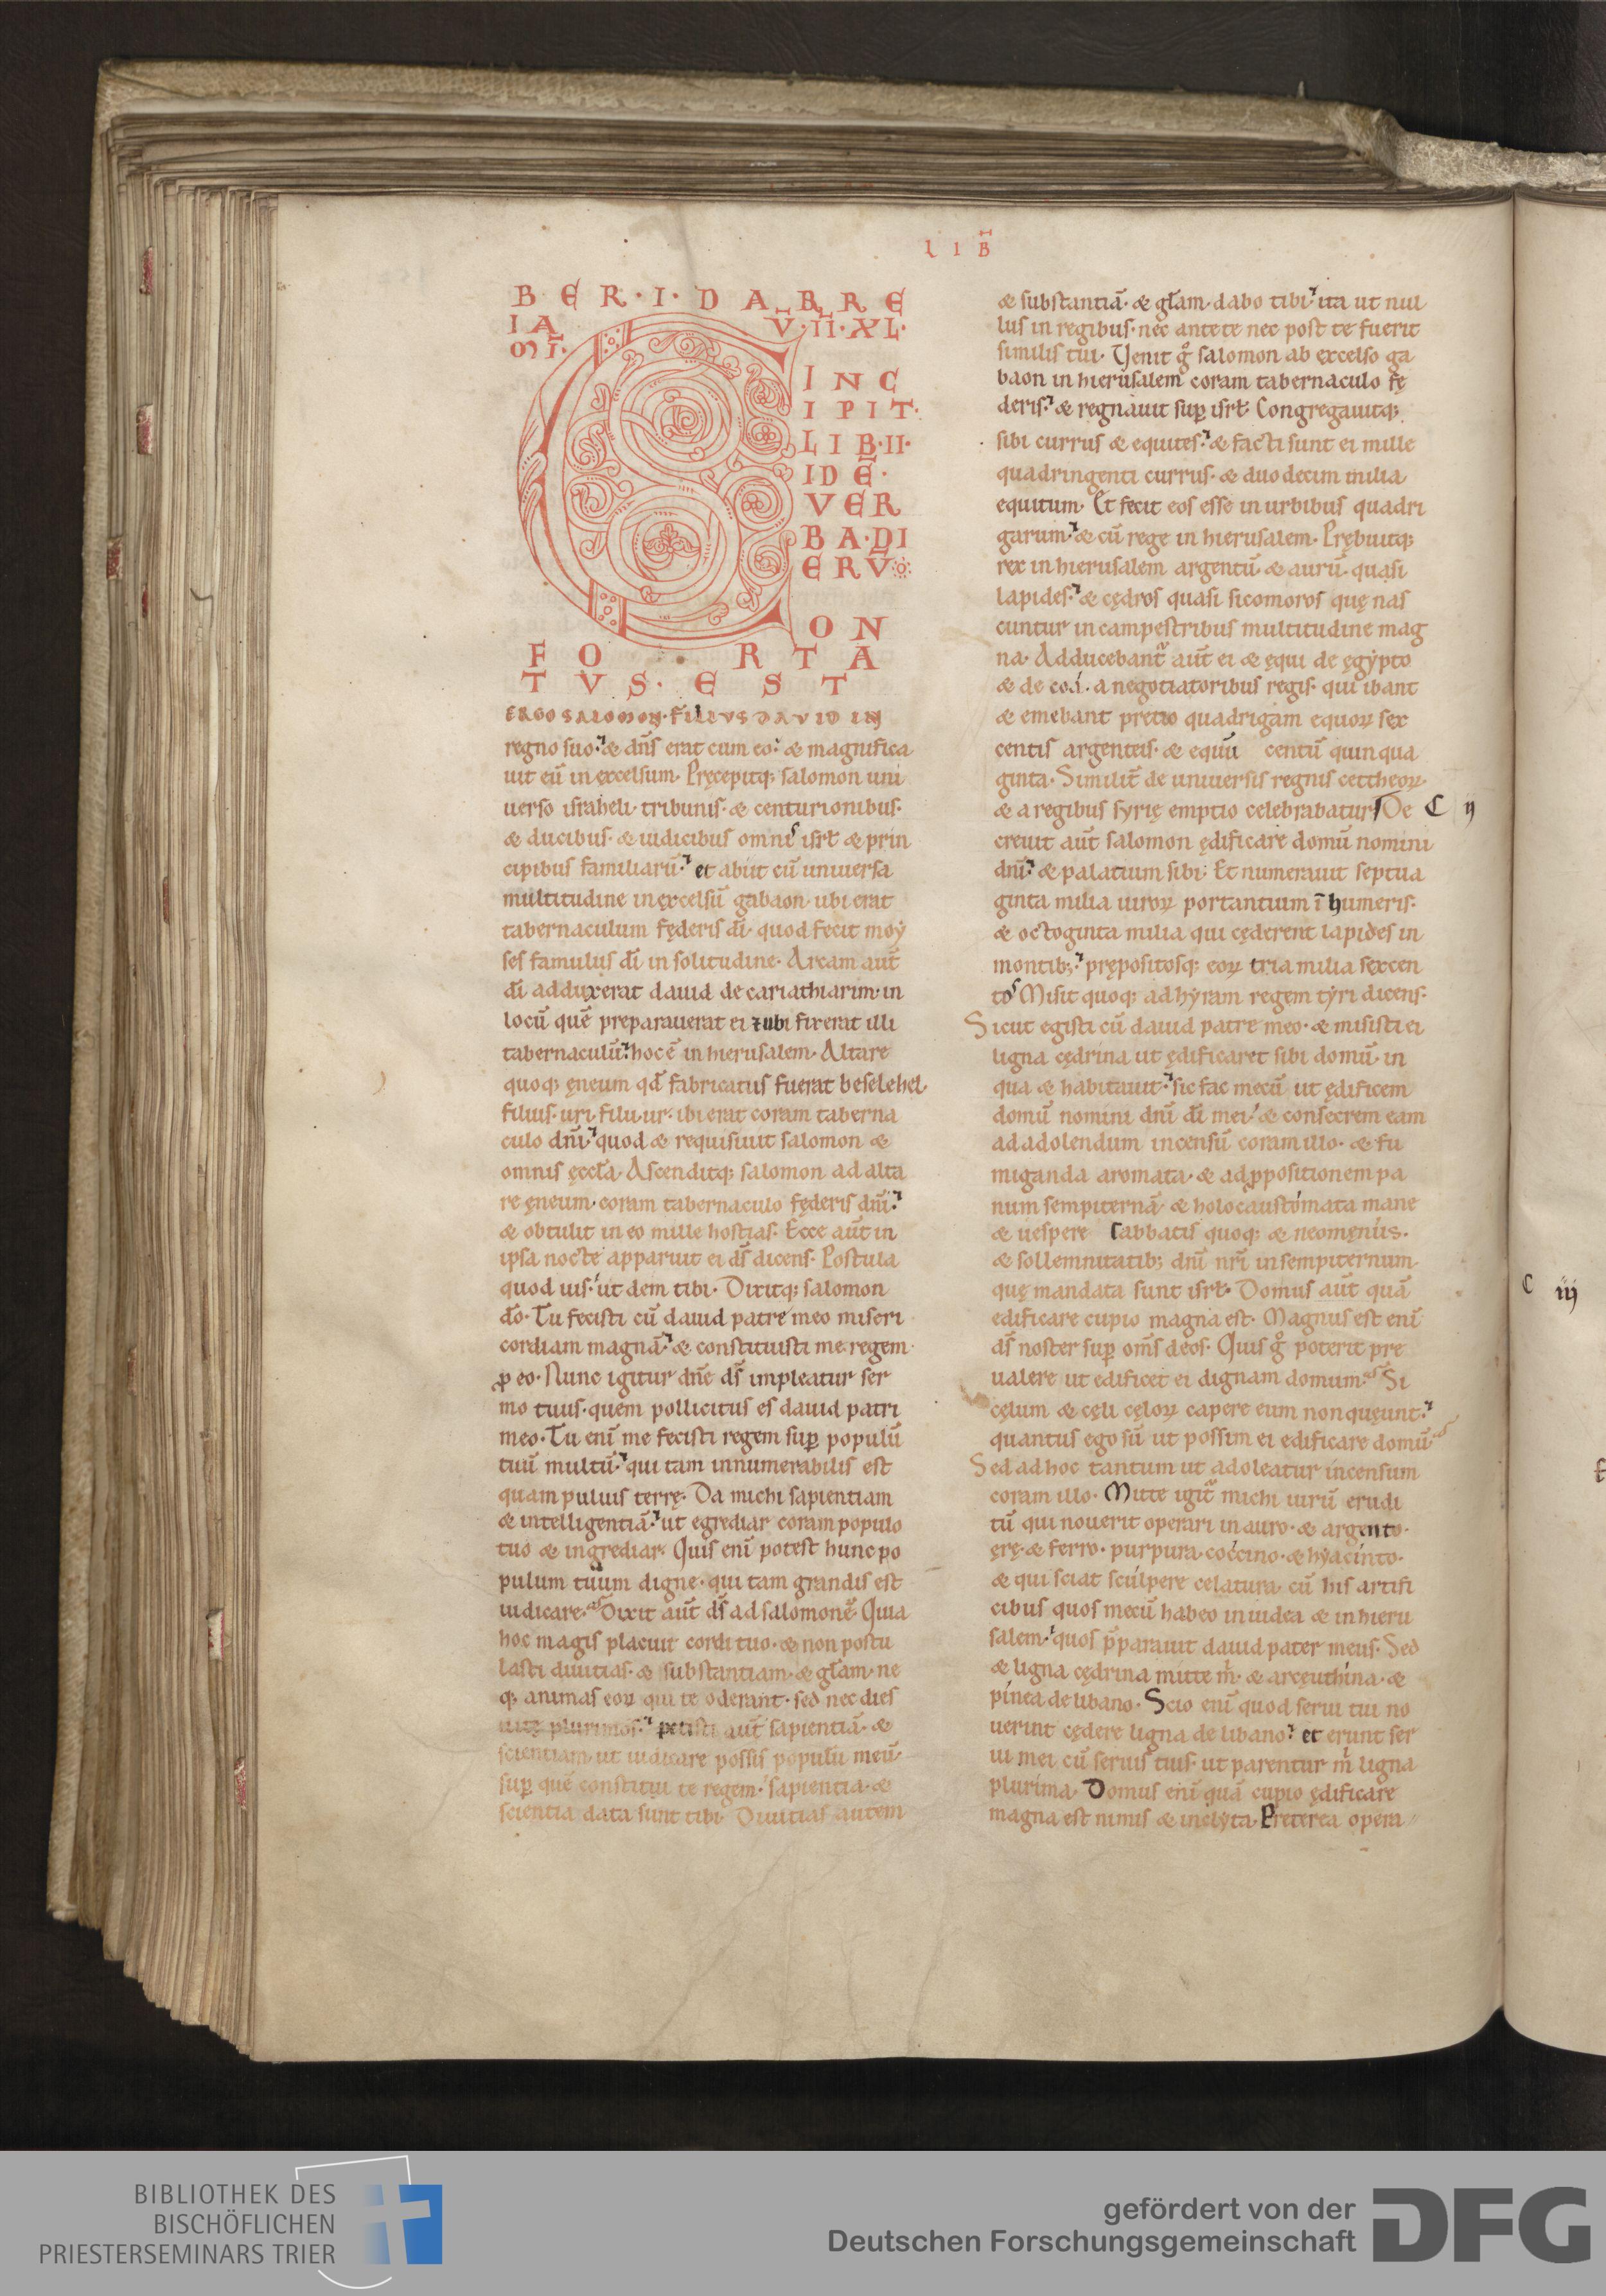 L I B̃
B E R · I · D A B R E
I A V · II · XL ·
MI ·
I N C
I P I T ·
L I B · II ·
I D E ·
V E R
B A · DI
E R V̄
C
O N
F O R T A
T V S · E S T
ERGO SALOMON · FILIVS DAVID IN
regno suo · & dn̄s erat cum eo · & magnifica
uit eū in excelsum · Pręcepitq; salomon uni
uerso israheli · tribunis · & centurionibus ·
& ducibus · & iudicibus omnis isrł & prin
cipibus familiarū · et abiit cū uniuersa
multitudine in excelsū gabaon · ubi erat
tabernaculum fęderis dī · quod fecit moy
ses famulus dī in solitudine · Arcam aut̄
dī adduxerat dauid de cariathiarim · in
locū quē preparauerat ei ⁊ ubi fixerat illi
tabernaculū · hoc ē in hierusalem · Altare
quoq; ęneum qđ fabricatus fuerat beselehel
filius · uri · filii · ur · ibi erat coram taberna
culo dnī · quod & requisiuit salomon &
omnis ęccła · Ascenditq; salomon ad alta
re ęneum · coram tabernaculo fęderis dnī ·
& obtulit in eo mille hostias · Ecce aut̄ in
ipsa nocte apparuit ei ds̄ dicens · Postula
quod uis · ut dem tibi · Dixitq; salomon
dō · Tu fecisti cū dauid patre meo miseri
cordiam magnā · & constituisti me regem
ꝓ eo · Nunc igitur dn̄e ds̄ impleatur ser
mo tuus · quem pollicitus es dauid patri
meo · Tu enī me fecisti regem suꝑ populū
tuū multū · qui tam innumerabilis est
quam puluis terrę · Da michi sapientiam
& intelligentiā · ut egrediar coram populo
tuo & ingrediar · Quis enī potest hunc po
pulum tuum digne · qui tam grandis est
iudicare · Dixit aut̄ ds̄ ad salomonē · Quia
hoc magis placuit cordi tuo · & non postu
lasti diuitias · & substantiam · & głam · ne
q; animas eoꝝ qui te oderant · sed nec dies
uitę plurimos · petisti aut̄ sapientiā · &
scientiam · ut iudicare possis populū meū ·
suꝑ quē constitui te regem · sapientia · &
scientia data sunt tibi · Diuitias autem
& substantiā · & głam · dabo tibi · ita ut nul
lus in regibus · nec ante te nec post te fuerit
similis tui · Venit gͦ salomon ab excelso ga
baon in hierusalem coram tabernaculo fę
deris · & regnauit suꝑ isrł · Congregauitq;
sibi currus & equites · & facti sunt ei mille
quadringenti currus · & duodecim milia
equitum · Et fecit eos esse in urbibus quadri
garum · & cū rege in hierusalem · Prębuitq;
rex in hierusalem argentū & aurū · quasi
lapides · & cędros quasi sicomoros quę nas
cuntur in campestribus multitudine mag
na · Adducebant᷑ aut̄ ei & ęqui de ęgypto
& de coá · a negotiatoribus regis · qui ibant
& emebant pretio quadrigam equoꝝ sex
centis argenteis · & equū centū quinqua
ginta · Similit̄ de uniuersis regnis cettheoꝝ ·
& a regibus syrię emptio celebrabatur · De C ij
creuit aut̄ salomon ędificare domū nomini
dnī · & palatium sibi · Et numerauit septua
ginta milia uiroꝝ portantium ī humeris ·
& octoginta milia qui cęderent lapides in
montib; · prępositosq; eoꝝ tria milia sexcen
tos Misit quoq; ad hyram regem tyri dicens ·
Sicut egisti cū dauid patre meo · & misisti ei
ligna cędrina ut ędificaret sibi domū · in
qua & habitauit · sic fac mecū ut ędificem
domū nomini dnī dī mei · & consecrem eam
ad adolendum incensū coram illo · & fu
miganda aromata · & ad ꝓpositionem pa
num sempiternā · & holocaustómata mane
& uespere sabbatis quoq; & neomęniis ·
& sollemnitatib; dnī nr̄i in sempiternum ·
quę mandata sunt isrł · Domus aut̄ quā C iij
edificare cupio magna est · Magnus est enī
ds̄ noster suꝑ om̄s deos · Quis gͦ poterit pre
ualere ut edificet ei dignam domum · Si
cęlum & cęli cęloꝝ capere eum non queunt ·
quantus ego sū ut possim ei edificare domū
Sed ad hoc tantum ut adoleatur incensum
coram illo · Mitte igit᷑ michi uirū erudi
tū qui nouerit operari in auro · & argento ·
ęrę · & ferro · purpura · coccino · & hyacinto ·
& qui sciat scúlpere celatura · cū his artifi
cibus quos mecū habeo in iudea & in hieru
salem · quos p̄parauit dauid pater meus · Sed
& ligna cędrina mitte m̍ · & arceuthina · &
pínea de libano · Scio enī quod serui tui no
uerint cędere ligna de libano · et erunt ser
ui mei cū seruis tuis · ut parentur m̍ ligna
plurima · Domus enī quā cupio ędificare
magna est nimis & inclyta · Preterea opera
BIBLIOTHEK DES
BISCHÖFLICHEN
PRIESTERSEMINARS TRIER
gefördert von der
Deutschen Forschungsgemeinschaft
DFG